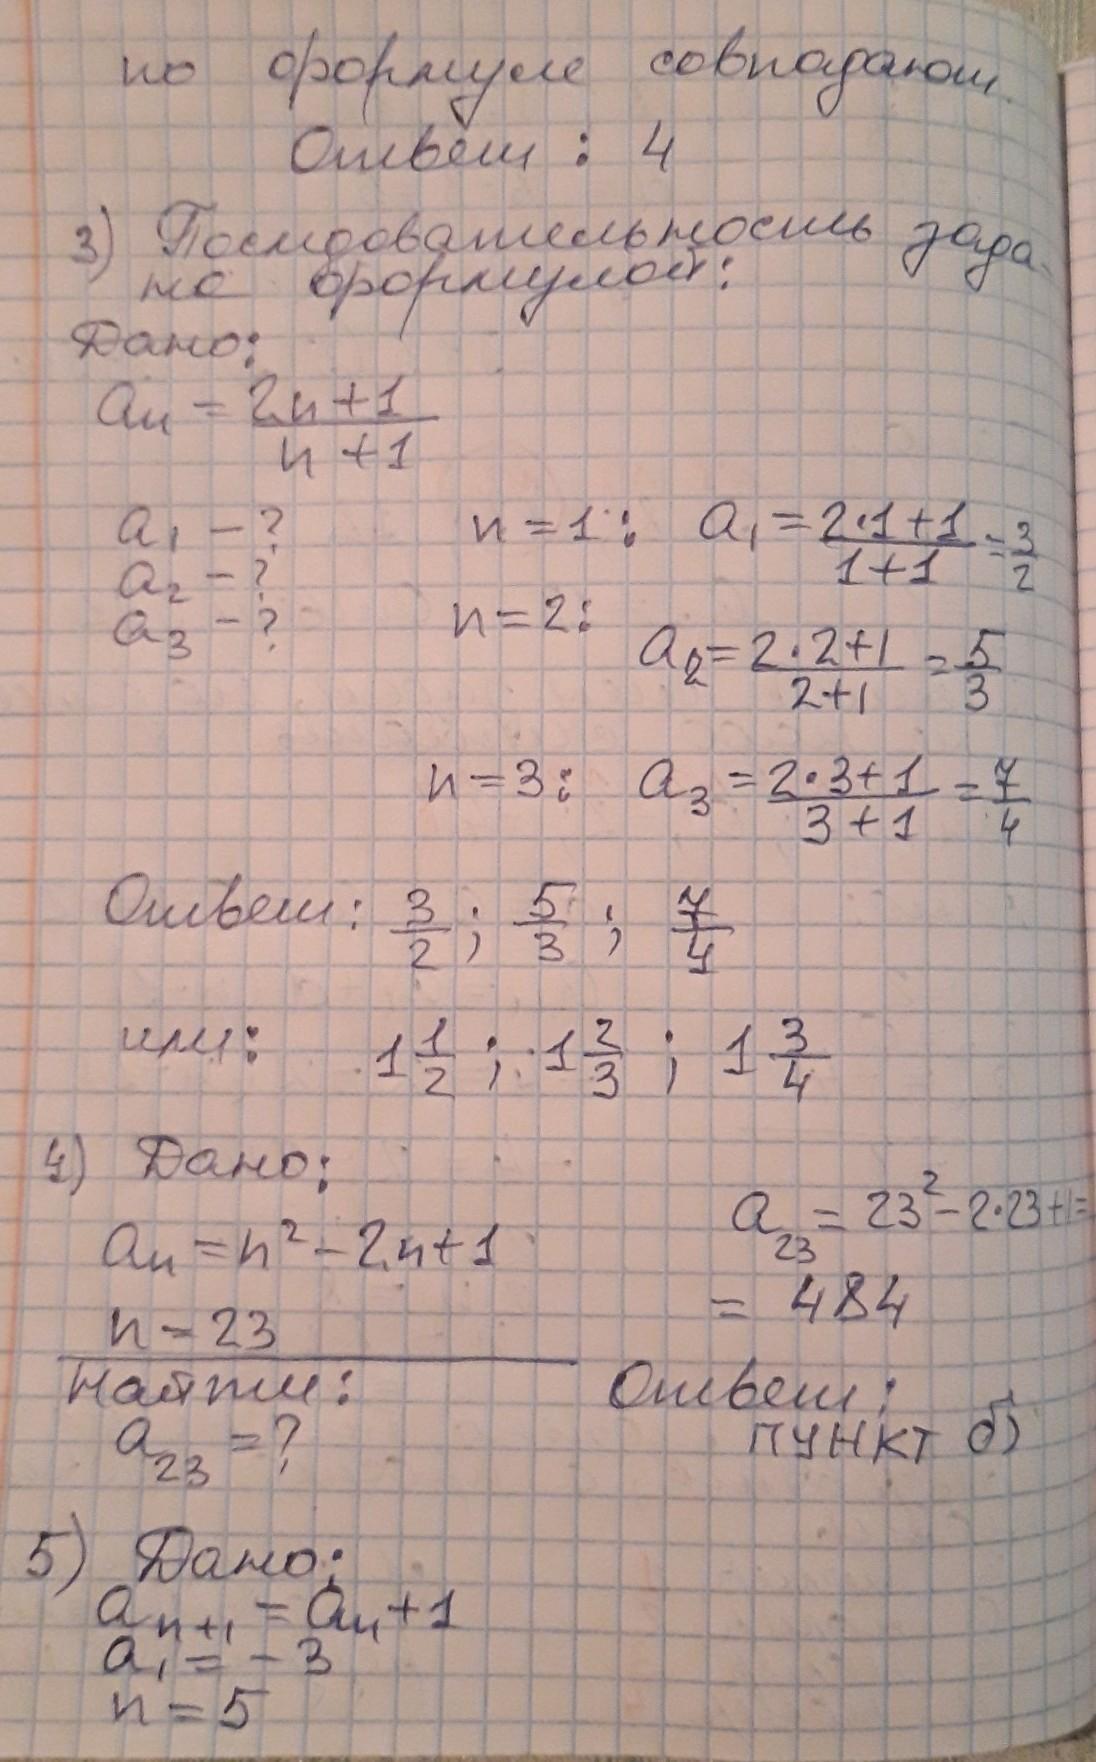 по формуле совпадают.
Ответ: 4
3) Последовательность зада-
на формулой:
Дано:
aₙ = (2n+1)/(n+1)
a₁ – ? n = 1: a₁ = (2·1+1)/(1+1) = 3/2
a₂ – ?
a₃ – ? n = 2:
a₂ = (2·2+1)/(2+1) = 5/3
n = 3: a₃ = (2·3+1)/(3+1) = 7/4
Ответ: 3/2; 5/3; 7/4
или: 1 1/2; 1 2/3; 1 3/4
4) Дано:
aₙ = n² – 2n + 1
n = 23
Найти:
a₂₃ = ?
a₂₃ = 23² – 2·23 + 1 =
= 484
Ответ:
пункт б)
5) Дано:
aₙ₊₁ = aₙ + 1
a₁ = – 3
n = 5